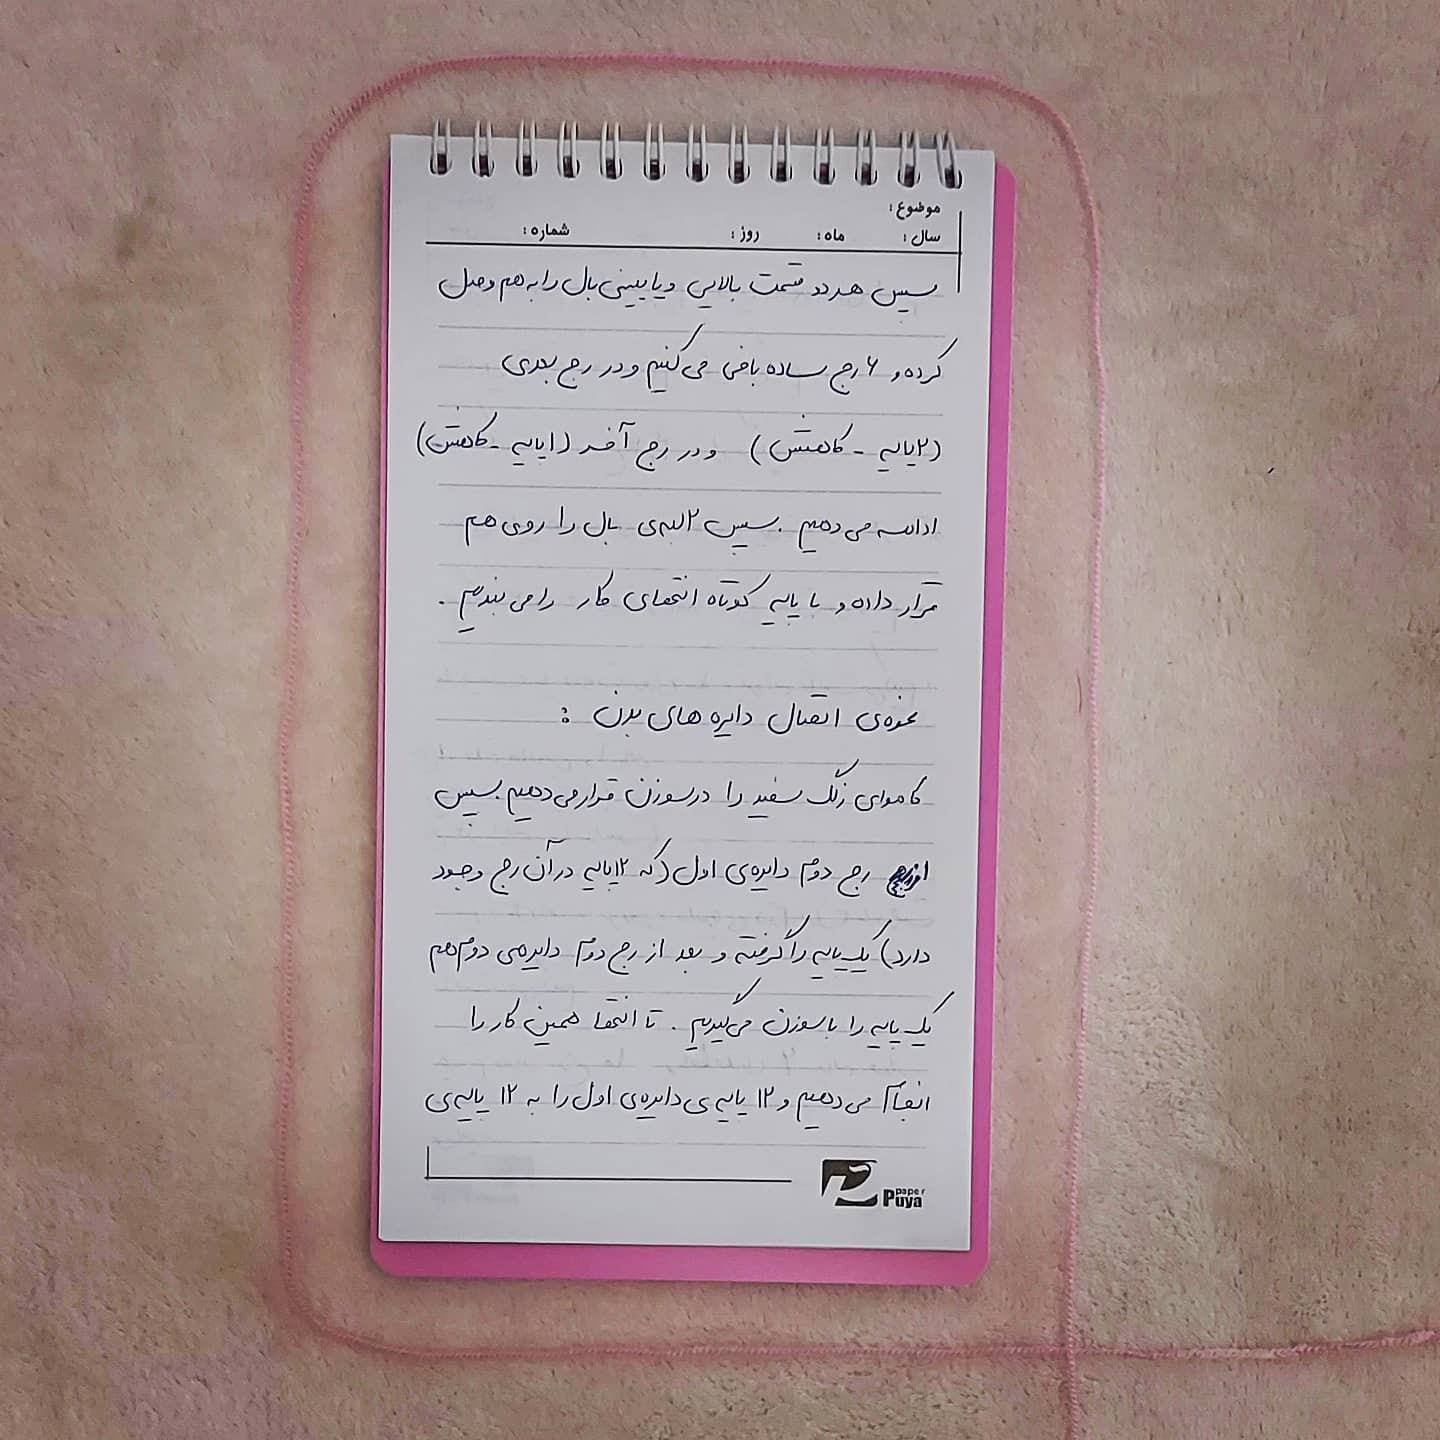 موضوع :
سال : ماه : روز : شماره :
سپس هر دو قسمت بالایی و پایینی بال را به هم وصل
کرده و ۶ رج ساده بافی می کنیم و در رج بعدی
(۲ پایه - کاهش) و در رج آخر (۱ پایه - کاهش)
ادامه می دهیم . سپس ۲ لبه ی بال را روی هم
قرار داده و با پایه کوتاه انتهای کار را می بندیم .
نحوه ی اتصال دایره های بدن :
کاموای رنگ سفید را در سوزن قرار می دهیم . سپس
از رج دوم دایره ی اول (که ۱۲ پایه در آن رج وجود
دارد) یک پایه را گرفته و بعد از رج دوم دایره ی دوم هم
یک پایه را با سوزن می گیریم . تا انتها همین کار را
انجام می دهیم و ۱۲ پایه ی دایره ی اول را به ۱۲ پایه ی
paper
Puya